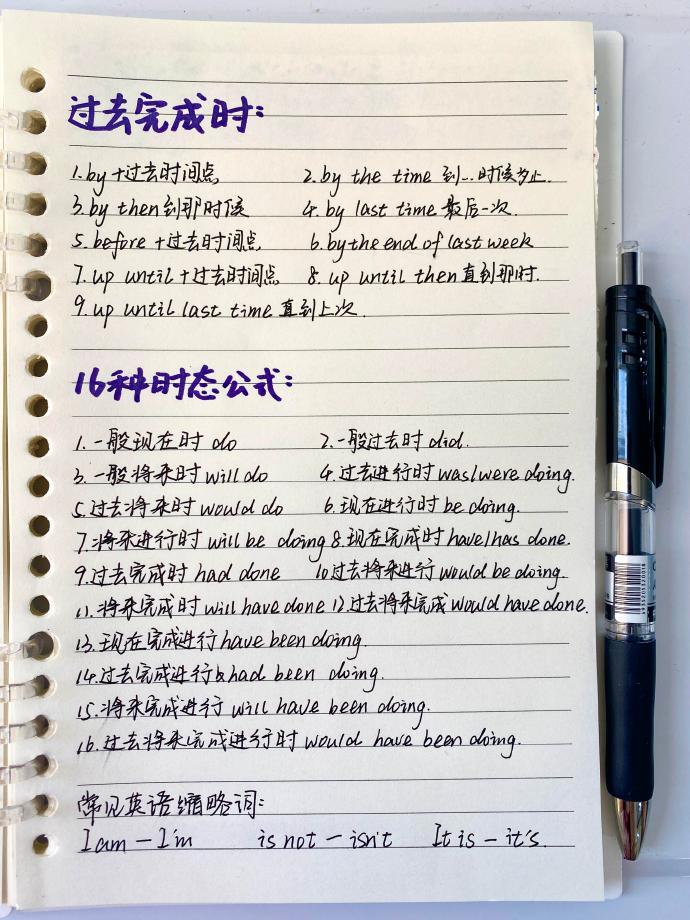 过去完成时:
1.by+过去时间点 2.by the time 到...时候为止.
3.by then到那时候 4.by last time 最后一次.
5.before+过去时间点, 6.by the end of last week
7.up until+过去时间点 8.up until then直到那时.
9.up until last time 直到上次.
16种时态公式:
1.一般现在时 do 2.一般过去时 did.
3.一般将来时 will do 4.过去进行时 was/were doing.
5.过去将来时 would do 6.现在进行时 be doing.
7.将来进行时 will be doing 8.现在完成时 have/has done.
9.过去完成时 had done 10过去将来进行 would be doing.
11.将来完成时 will have done 12.过去将来完成 would have done.
13.现在完成进行 have been doing.
14.过去完成进行 had been doing.
15.将来完成进行 will have been doing.
16.过去将来完成进行时 would have been doing.
常见英语缩略词:
I am — I'm is not — isn't It is — it's.